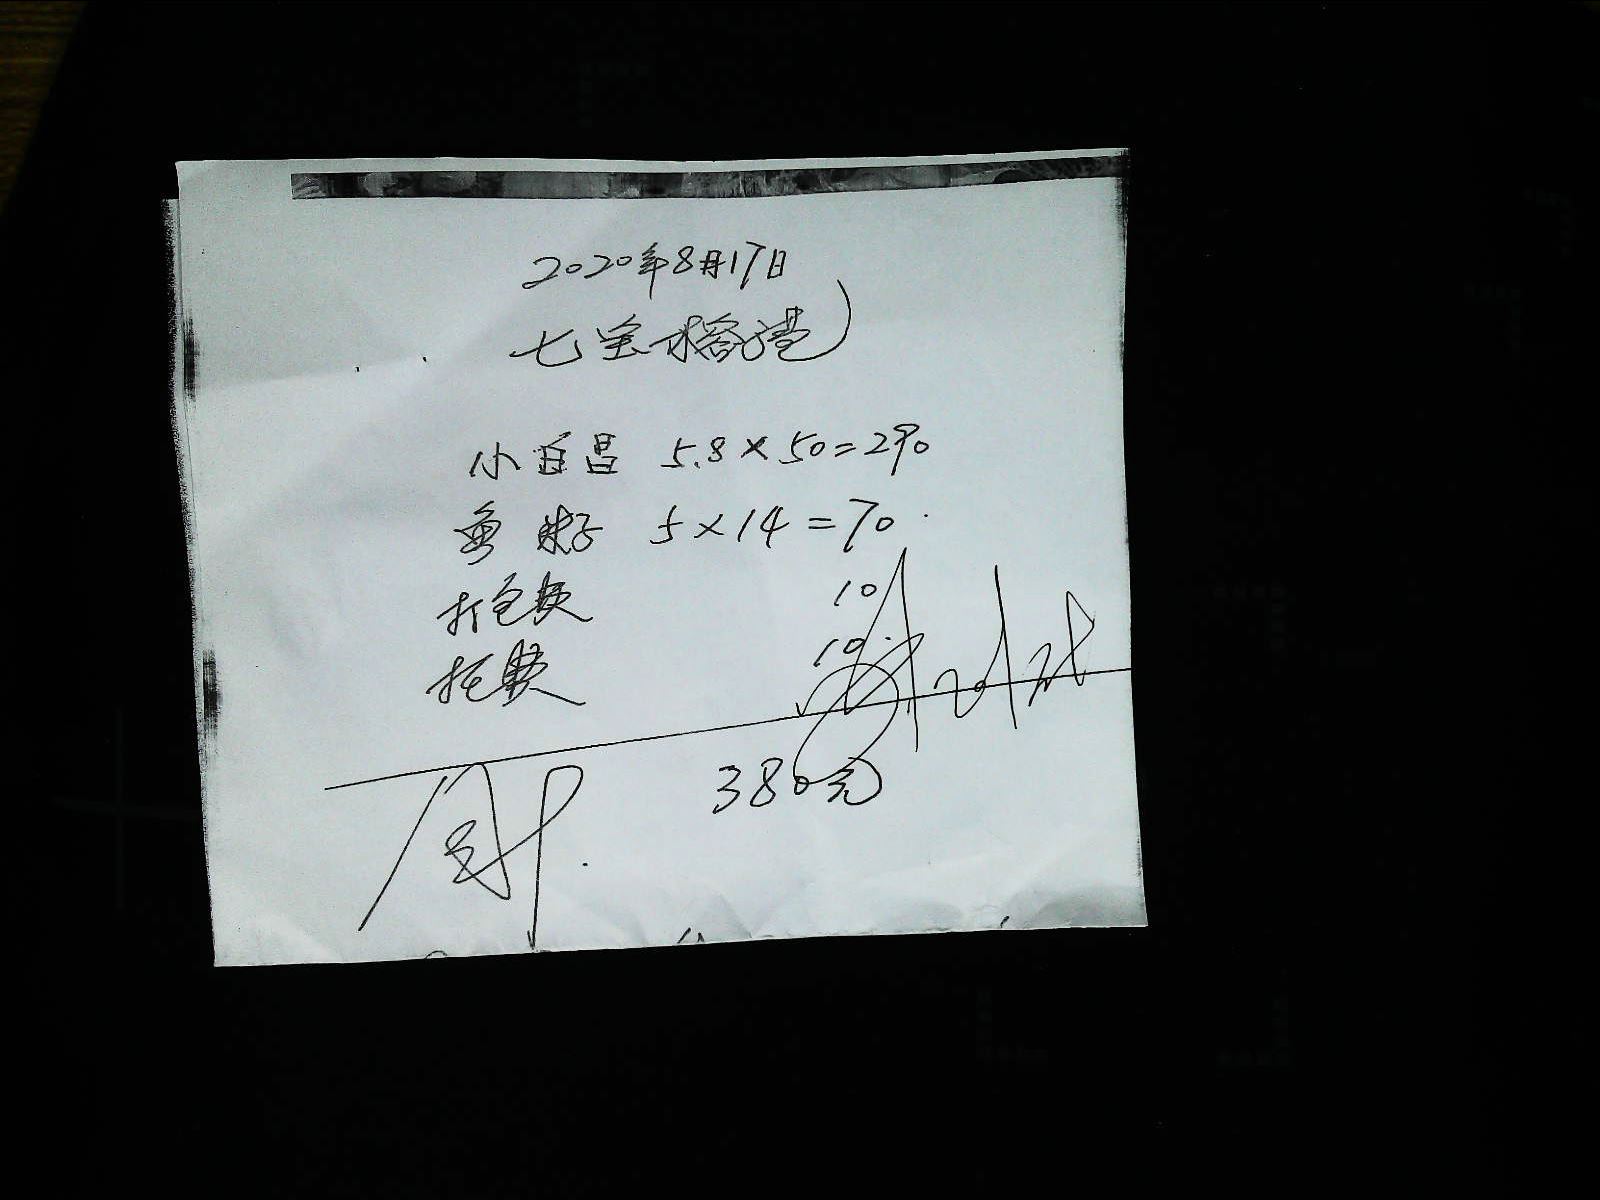 2020年8月17日
七宝榕港
小白昌 5.8×50=290
鱼籽 5×14=70
打包费 10
托费 10
380元